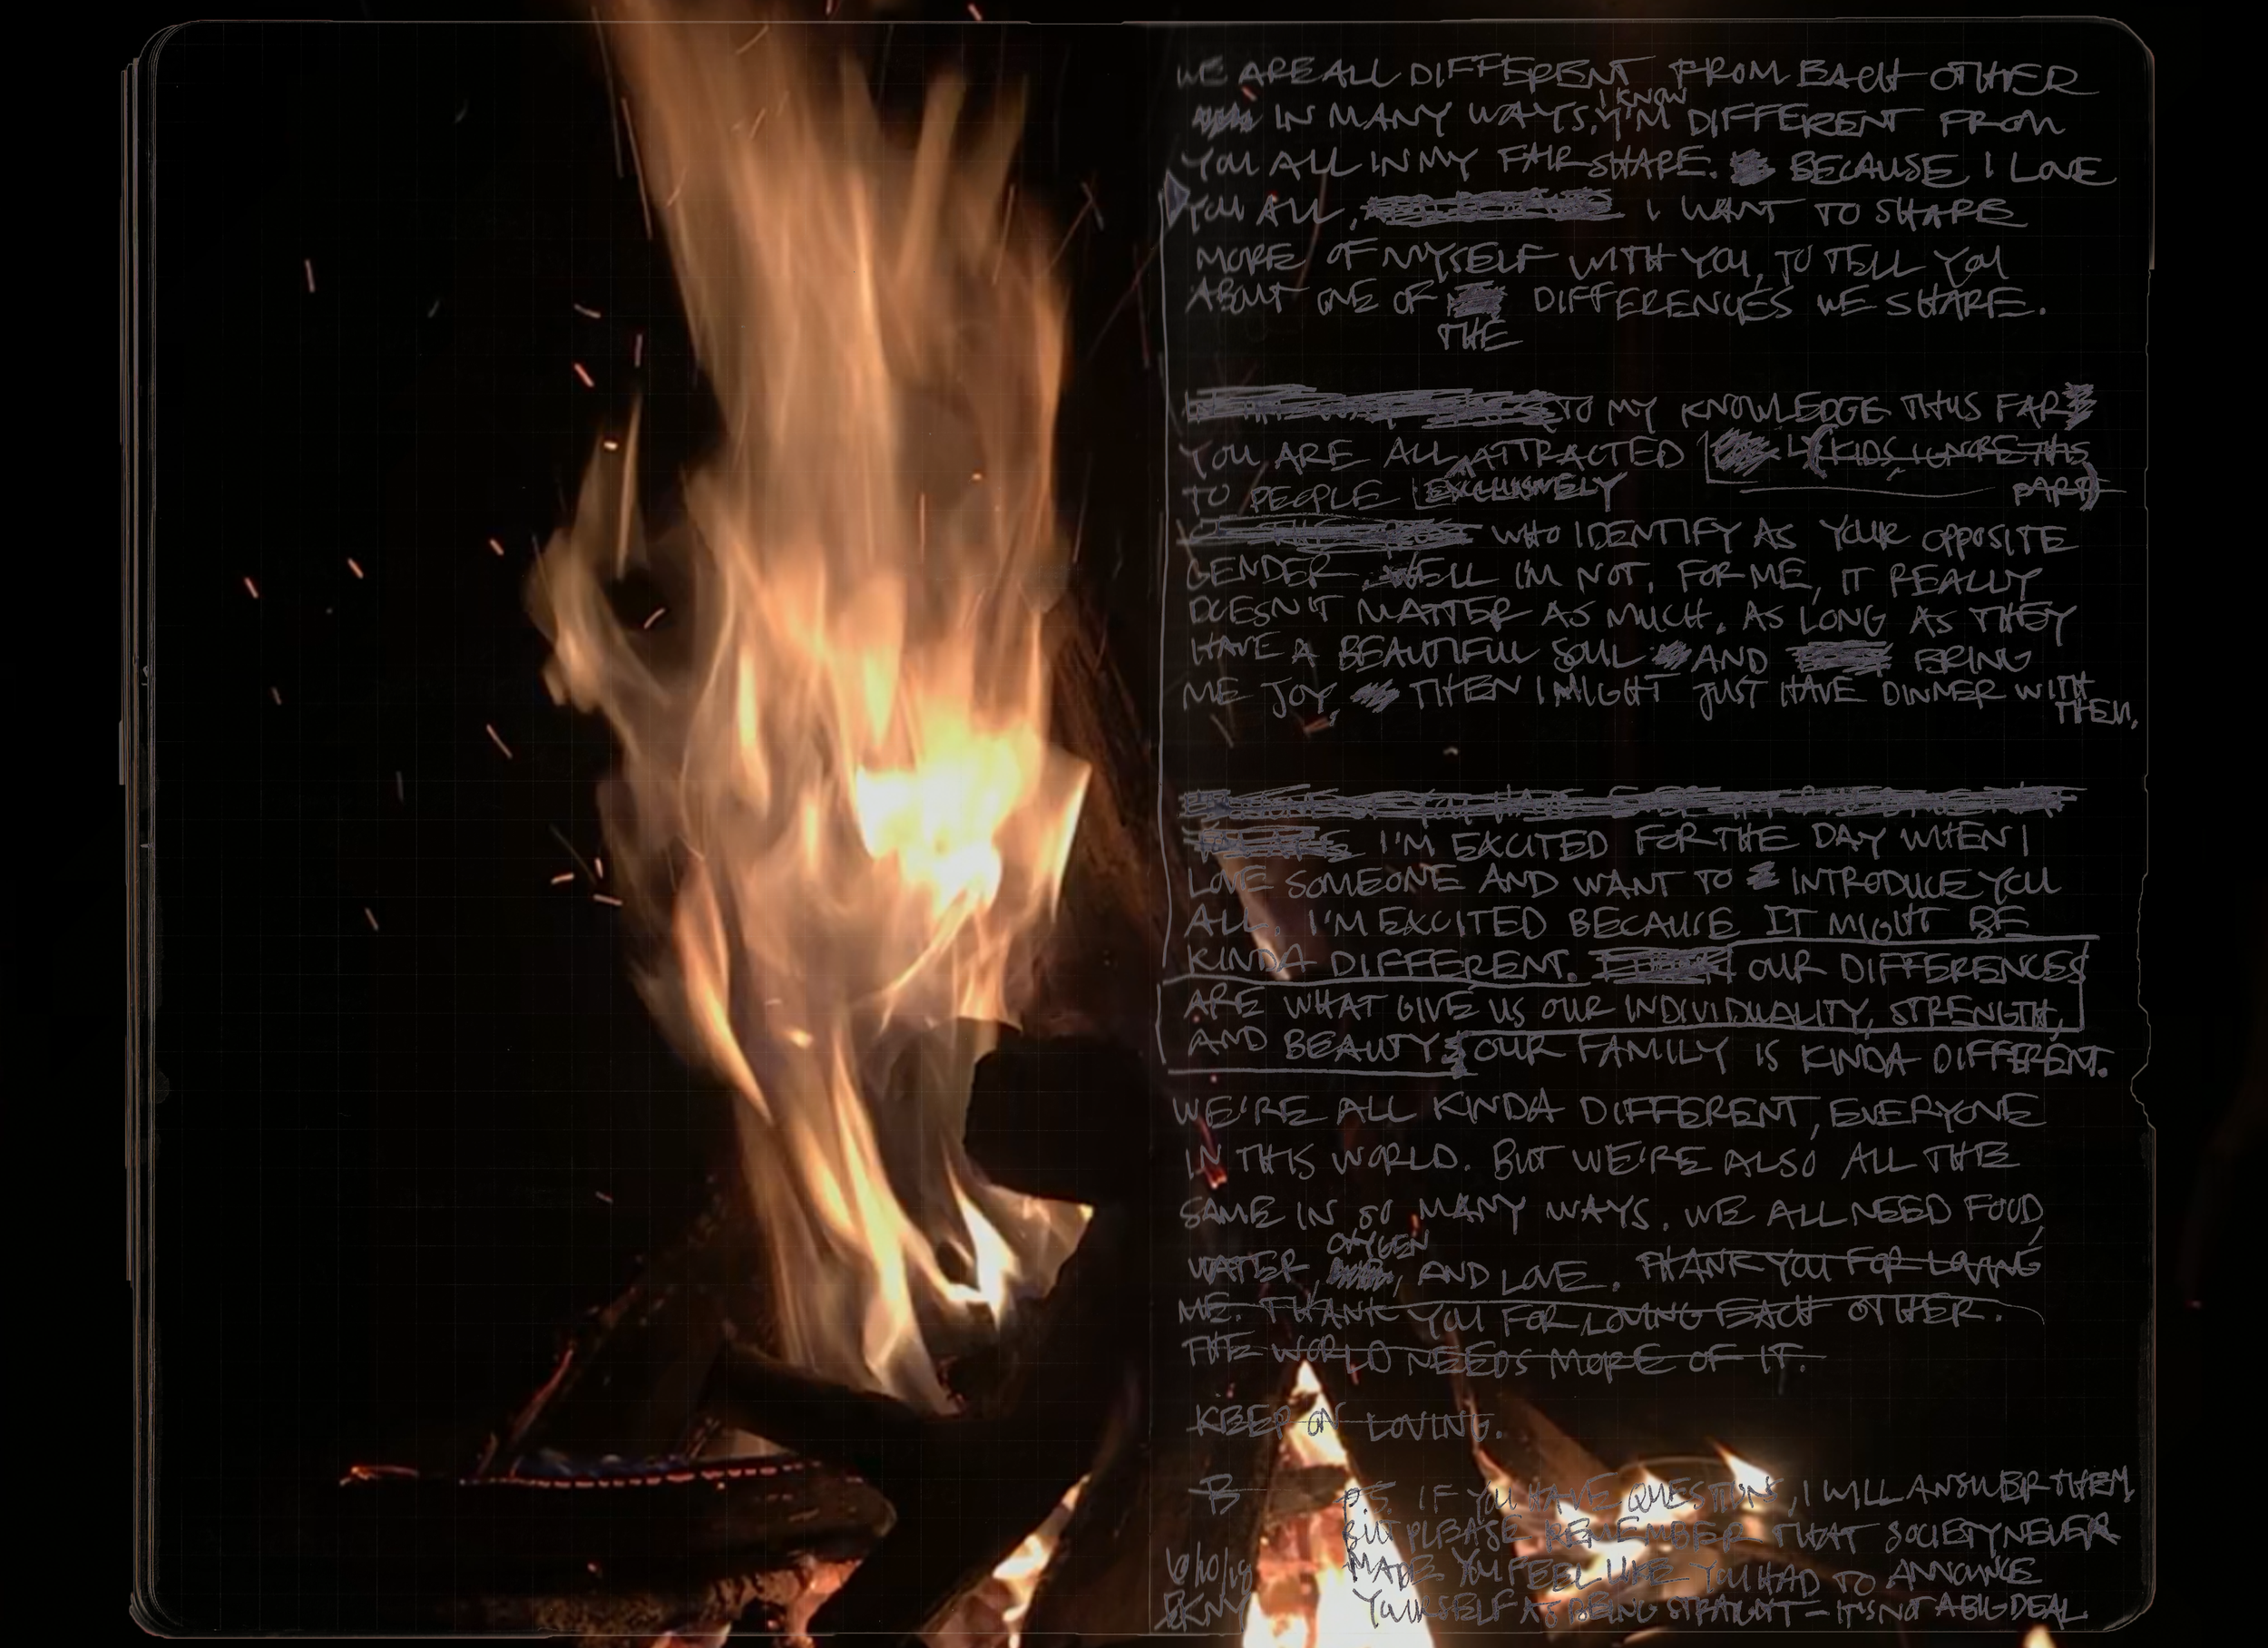 WE ARE ALL DIFFERENT FROM EACH OTHER
IN MANY WAYS, I KNOW I'M DIFFERENT FROM
YOU ALL IN MY FAIR SHARE. BECAUSE I LOVE
YOU ALL, I WANT TO SHARE
MORE OF MYSELF WITH YOU, TO TELL YOU
ABOUT ONE OF DIFFERENCES WE SHARE.
THE
TO MY KNOWLEDGE THUS FAR
YOU ARE ALL ATTRACTED (KIDS, IGNORE THIS
TO PEOPLE EXCLUSIVELY PART)
WHO IDENTIFY AS YOUR OPPOSITE
GENDER. WELL I'M NOT. FOR ME, IT REALLY
DOESN'T MATTER AS MUCH. AS LONG AS THEY
HAVE A BEAUTIFUL SOUL AND BRING
ME JOY, THEN I MIGHT JUST HAVE DINNER WITH
THEM.
I'M EXCITED FOR THE DAY WHEN I
LOVE SOMEONE AND WANT TO INTRODUCE YOU
ALL. I'M EXCITED BECAUSE IT MIGHT BE
KINDA DIFFERENT. OUR DIFFERENCES
ARE WHAT GIVE US OUR INDIVIDUALITY, STRENGTH,
AND BEAUTY. OUR FAMILY IS KINDA DIFFERENT.
WE'RE ALL KINDA DIFFERENT, EVERYONE
IN THIS WORLD. BUT WE'RE ALSO ALL THE
SAME IN SO MANY WAYS. WE ALL NEED FOOD,
OXYGEN
WATER, AND LOVE. THANK YOU FOR LOVING
ME. THANK YOU FOR LOVING EACH OTHER.
THE WORLD NEEDS MORE OF IT.
KEEP ON LOVING.
B
P.S. IF YOU HAVE QUESTIONS, I WILL ANSWER THEM,
BUT PLEASE REMEMBER THAT SOCIETY NEVER
MADE YOU FEEL LIKE YOU HAD TO ANNOUNCE
YOURSELF AS BEING STRAIGHT – IT'S NOT A BIG DEAL.